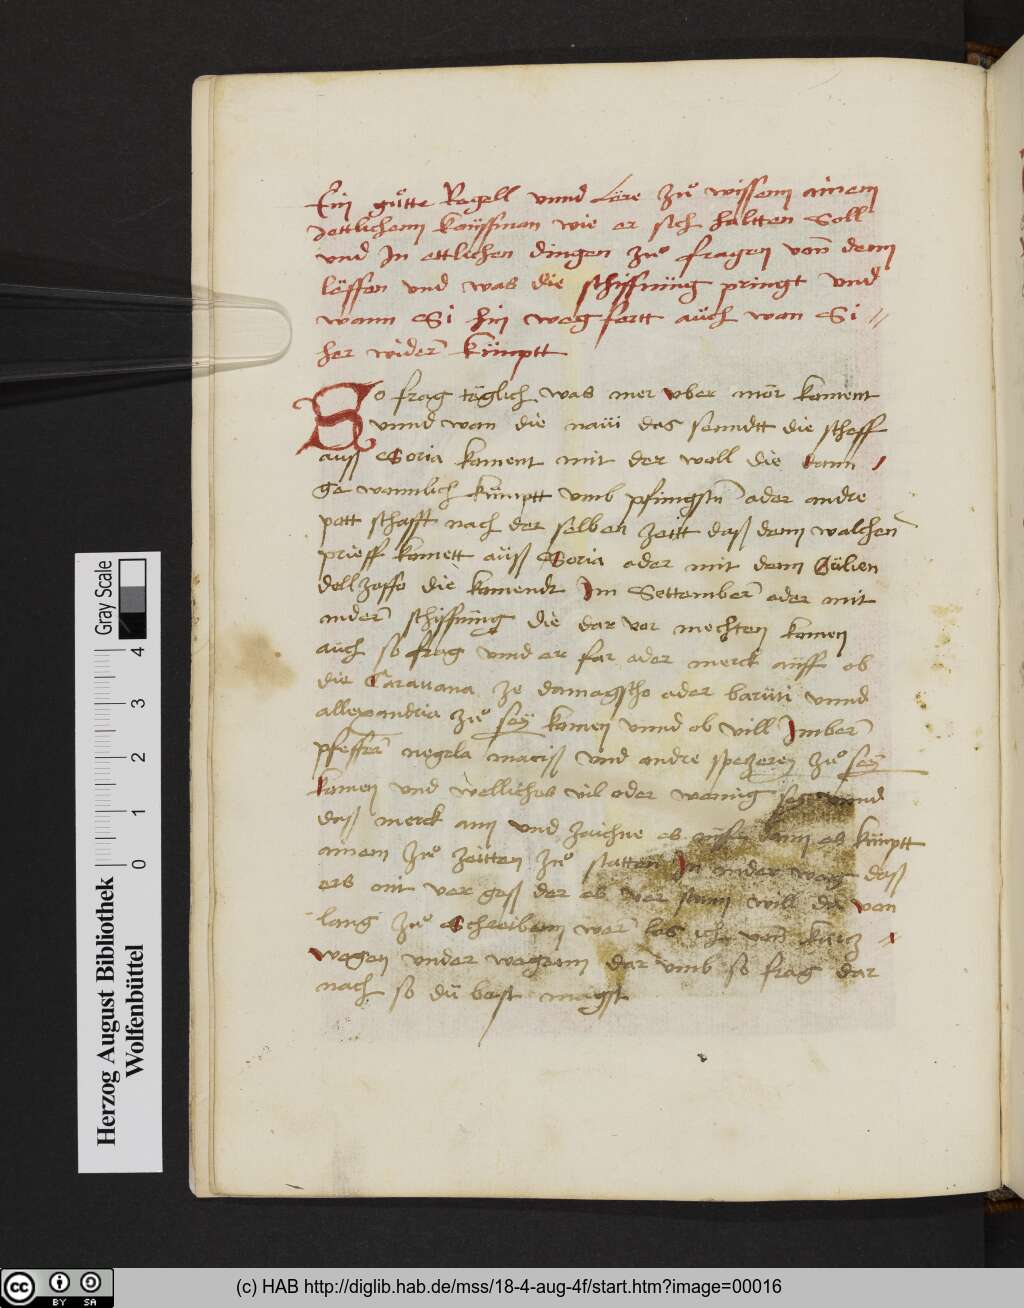 Ein gůtte Regell vnnd Lere zů wissenn ainem
Jettlichenn kauffman wie er sich haltten Soll
vnd Jn ettlichen dingen zů fragen von denn
leüffen vnd was die schiffung pringt vnd
wann Si hin weg fertt auch wan Si
her wider kümptt
So frag täglich was mer vber mör koment
vnnd wan die naüi das senndtt die scheff
auß Soria koment mit der woll die dann
ge wonlich kümptt vmb pfingstn oder andre
pott schafft nach der selben zeitt daß denn walchen
prieff komett aüß Soria oder mit denn Gälien
dell zaffo die komendt Jm Settember oder mit
nder schiffüng die dar vor mechten komen
auch so frag vnnd er far oder merck auff ob
die Carauana ze damagscho oder barüti vnnd
allexandria zů sey komen vnnd ob vill Jmber
pfeffer negela maciß vnd andre spezerey zů sey
komen vnd welliches vil oder wennig sey vnnd
daß merck ann vnd zaichne es auff dann es kümptt
ainem zů zeitten zů statten Jn ander weg daß
ers nit ver gess der es ver stenn will die von
lang zů Schreibenn wer las ich von kürcz
wegen vnder wegenn dar vmb so frag dar
nach so dü best magst
Gray Scale
0 1 2 3 4
Herzog August Bibliothek
Wolfenbüttel
cc BY SA
(c) HAB http://diglib.hab.de/mss/18-4-aug-4f/start.htm?image=00016